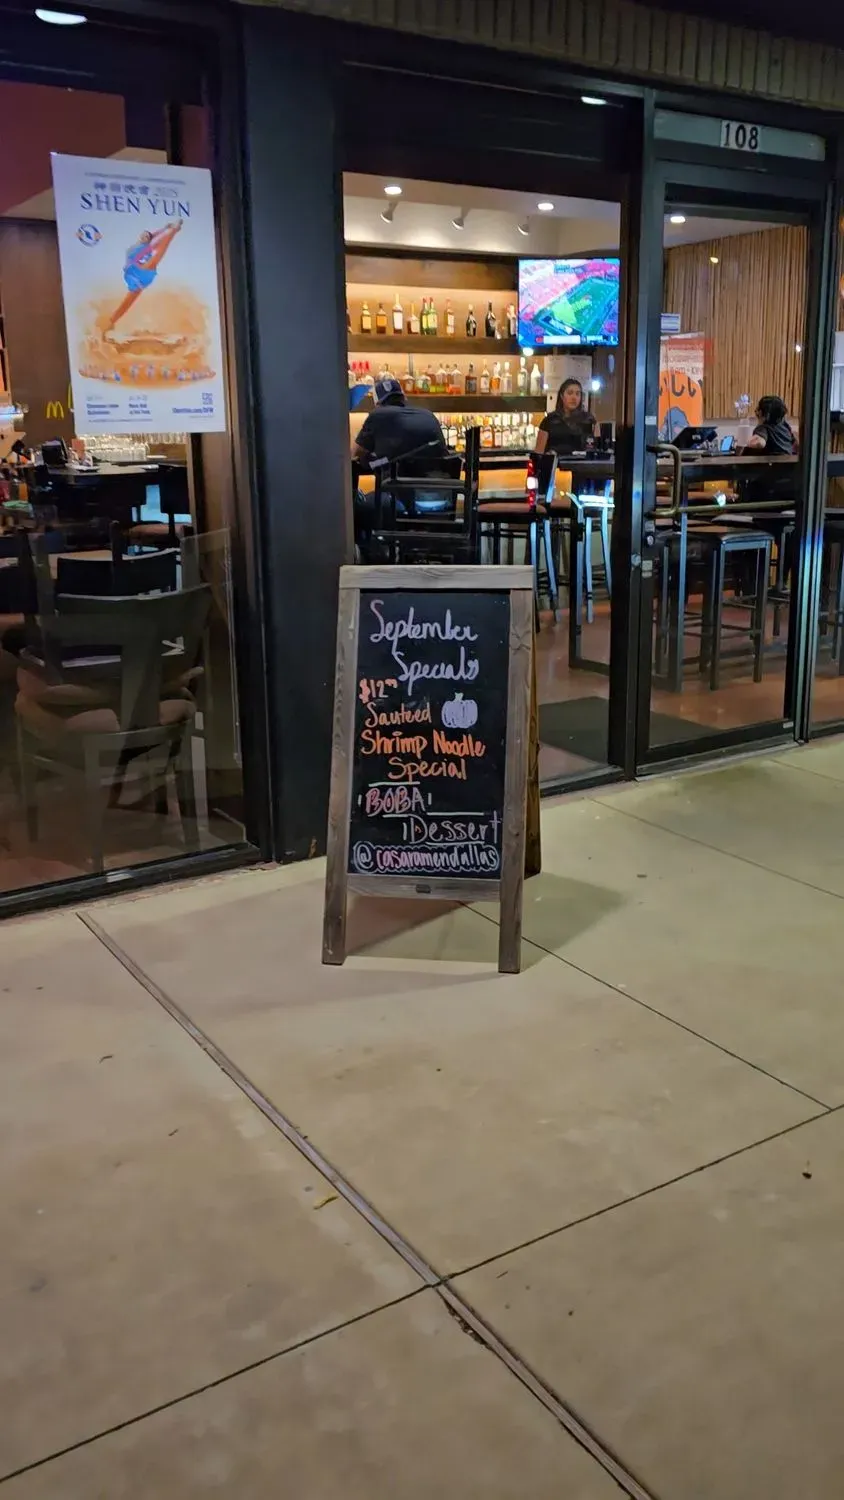 神韻晚會 2025
SHEN YUN
108
September
Specials
$12.⁹⁹
Sauteed
Shrimp Noodle
Special
BOBA
Dessert
@casaramendallas